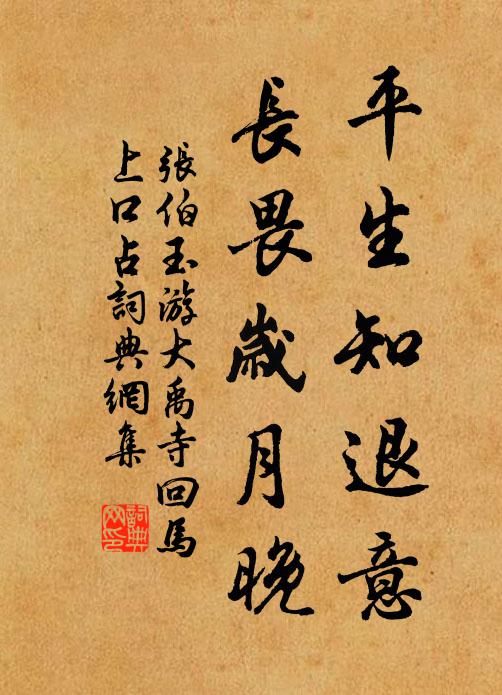 平生知退意
長畏歲月晚
張伯玉游大禹寺回馬
上口占詞典網集
詞典网印